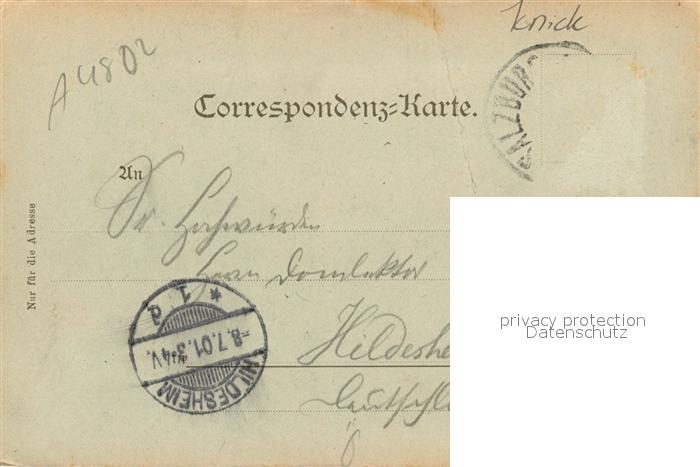 knick
A4802
SALZBURG
Correspondenz=Karte.
An
Sr. Hochwürden
Herrn Domlektor
Hildeshe
Deutschl
Nur für die Adresse
* 1 d
-8.7.01.3-4V.
HILDESHEIM
privacy protection
Datenschutz